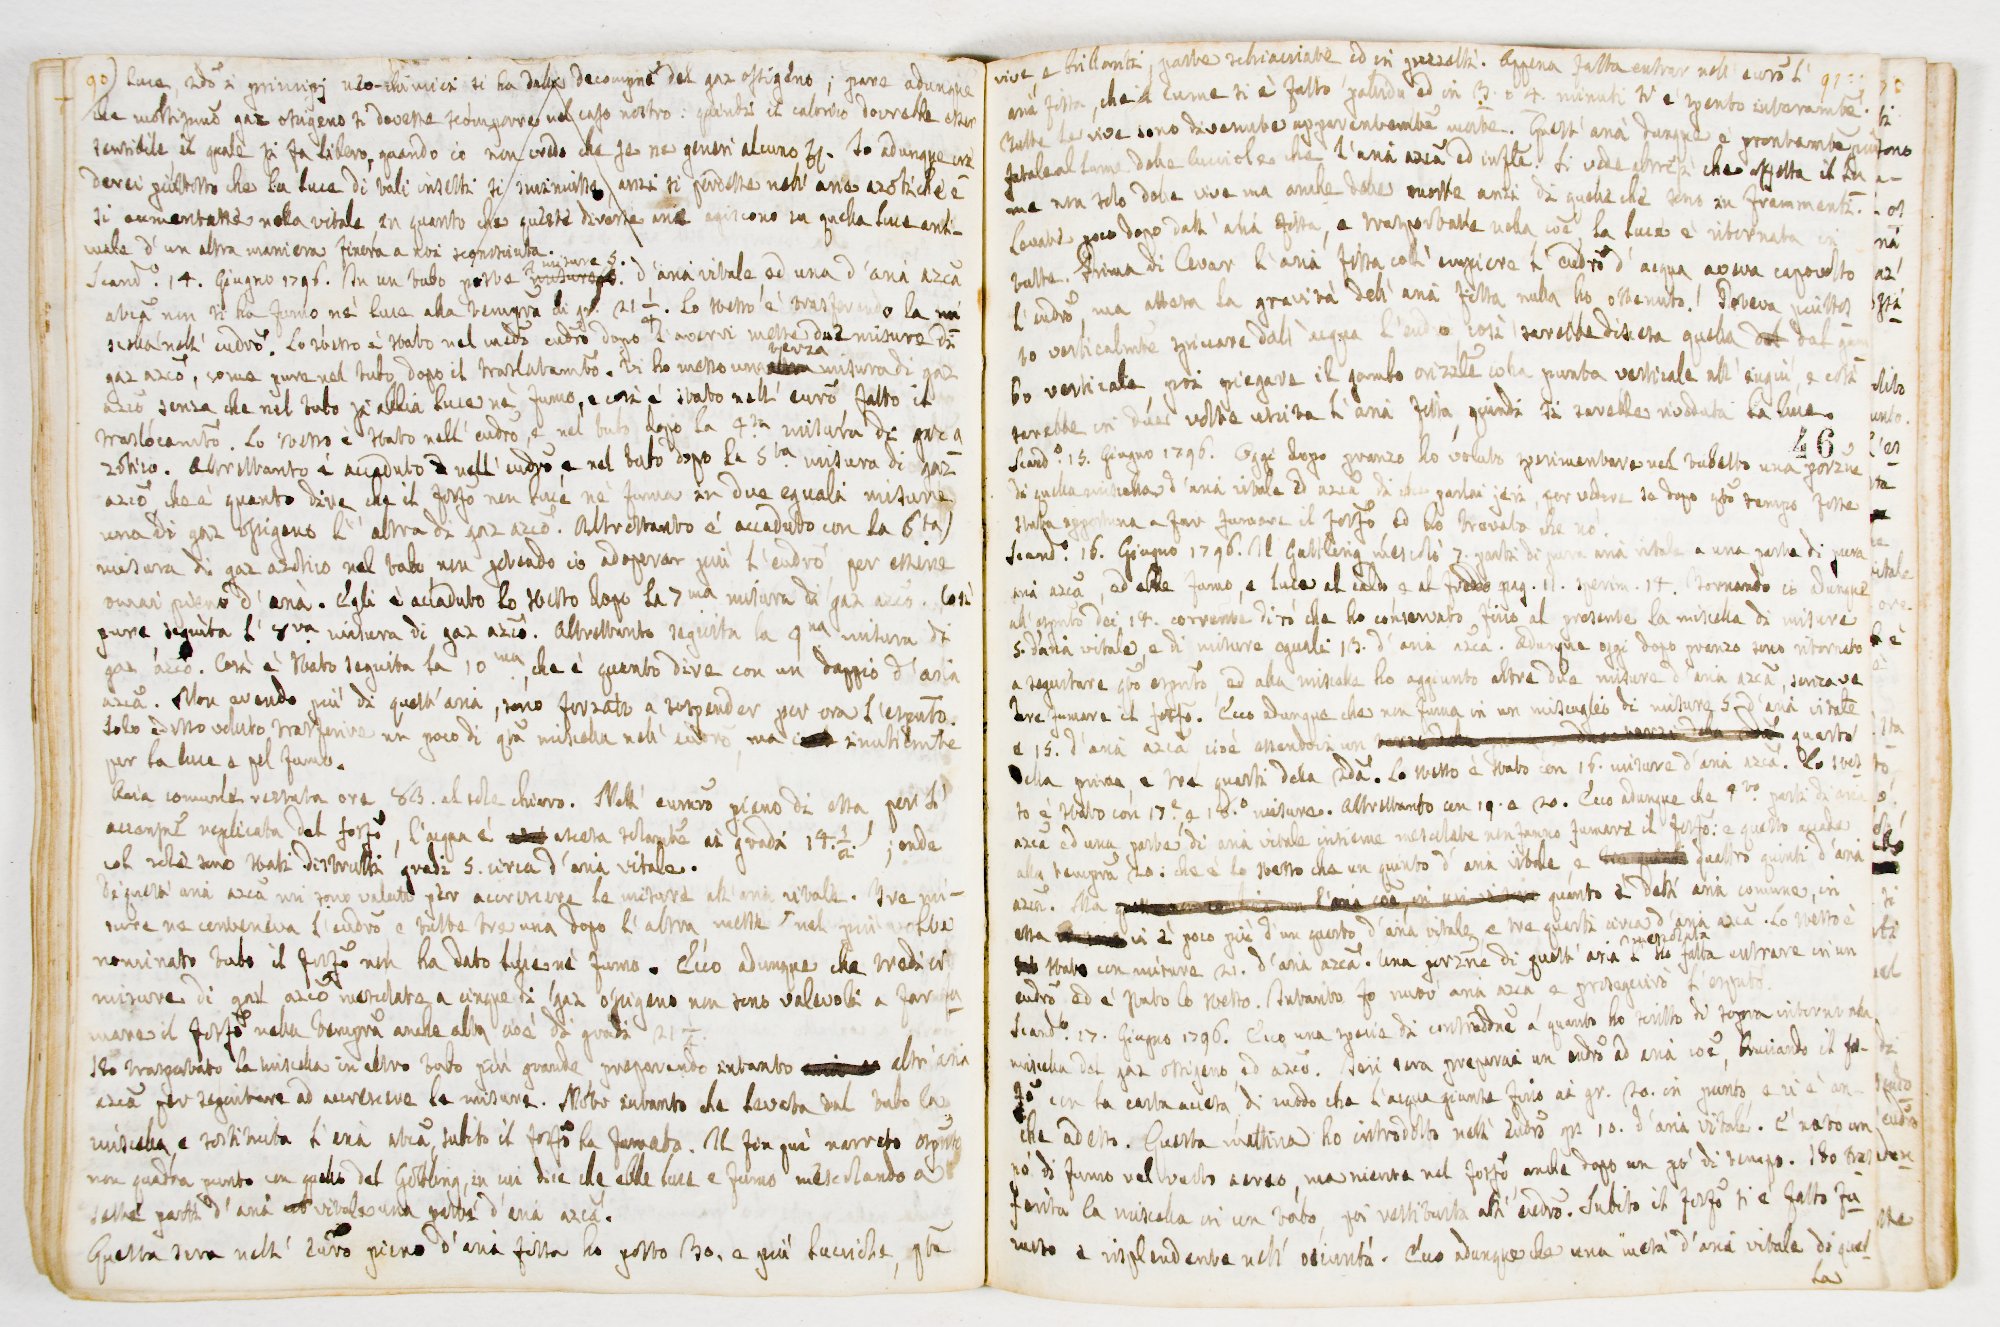 90) luce, 2do i principj neo-chimici si ha dalla decompne del gaz ossigeno; pare adunque
che moltissimo gaz ossigeno si dovesse scomporre nel caso nostro: quindi il calorico dovrebbe esser
sensibile il quale si fa libero, quando io non credo che se ne generi alcuno. Io adunque cre
derei piuttosto che la luce di tali insetti si sminuisse, anzi si perdesse nell' arie azotiche e
si aumentasse nella vitale, in quanto che queste diverse arie agiscono su quella luce ani-
male d' un altra maniera finora a noi sconosciuta.
Scand.o 14. Giugno 1796. In un tubo messe misure 5. d' aria vitale ed una d' aria azca
non si ha fumo nè luce alla tempra di gr. 21 1/2. Lo stesso è trasferendo la mi
scella nell' eudro. Lo stesso è stato nel medo eudro dopo d' avervi messe due misure di
gaz azco, come pure nel tubo dopo il traslatamto. Vi ho messo una terza misura di gaz
azco senza che nel tubo si abbia luce nè fumo, e così è stato nell' euro fatto il
traslocamto. Lo stesso è stato nell' eudro, e nel tubo dopo la 4.ta misura di gaz a
zotico. Altrettanto è accaduto nell' eudro e nel tubo dopo la 5ta misura di gaz
azco, che è quanto dire che il fosfo non luce nè fuma in due eguali misure
una di gaz ossigeno l' altra di gaz azco. Altrettanto è accaduto con la 6ta
misura di gaz azotico nel tubo non potendo io adoperar più l' eudro per essere
omai pieno d' aria. Egli è accaduto lo stesso dopo la 7ma misura di gaz azco. Così
pure seguita l' 8va misura di gaz azco. Altrettanto seguita la 9na misura di
gaz azco. Così è stato seguita la 10ma, che è quanto dire con un doppio d' aria
azca. Non avendo più di quest' aria, sono forzato a sospender per ora l' espmto.
Solo ho voluto trasferire un poco di qta miscella nell' eudro, ma inutilmte
per la luce e pel fumo.
Aria comune restata ore 8 1/2. al sole chiaro. Nell' eudro pieno di essa, per l'
accensne replicata del fosfo, l' acqua è ascesa soltanto ai gradi 14. 1/2; onde
col sole sono stati distrutti gradi 5. circa d' aria vitale.
Di quest' aria azca mi sono valuto per accrescere le misure all' aria vitale. Tre mi-
sure ne conteneva l' eudro e tutte tre una dopo l' altra messe nel più volte
nominato tubo il fosfo non ha dato luce nè fumo. Ecco adunque che tredici
misure di gaz azco mescolate a cinque di gaz ossigeno non sono valevoli a far fu
mare il fosfo nella tempra anche alta cioè di gradi 21 1/2.
Ho trasportato la miscella in altro tubo più grande preparando intanto altr' aria
azca per seguitare ad accrescere le misure. Noto intanto che levata dal tubo la
miscella, e sostituita l' aria atca, subito il fosfo ha fumato. Il fin qui narrato espmto
non quadra punto con quello del Göttling, in cui dice che ebbe luce e fumo mescolando a
sette parti d' aria vitale una parte d' aria azca.
Questa sera nell' euro pieno d' aria fissa ho posto 30. e più lucciole, pte
vive e brillanti, parte schiacciate ed in pezzetti. Appena fatta entrar nell' euro l' 91
aria fissa, che il lume si è fatto pallido ed in 3. o 4. minuti si è spento interamte.
Tutte le vive sono divenute apparentemte morte. Quest' aria dunque è prontamte più
fatale al lume delle lucciole che l' aria azca ed infle. Si vede altresì che offetta il lu
me non solo delle vive ma anche delle morte anzi di quelle che sono in frammenti.
Levate poco dopo dall' aria fissa, e trasportate nella coe, la luce è ritornata in
tutte. Prima di levar l' aria fissa coll' empiere l' eudro d' acqua aveva capovolto
l' eudro, ma attesa la gravità dell' aria fissa nulla ho ottenuto! Doveva piuttos
to verticalmte spiccare dall' acqua l' eudro, così sarebbe discesa quella dal gam
bo verticale, poi piegare il gambo orizzle colla punta verticale all' ingiù, e così
sarebbe in due volte uscita l' aria fissa, quindi si sarebbe riveduta la luce.
46
Scand.o 15. Giugno 1796. Oggi dopo pranzo ho voluto sperimentare nel tubetto una porzne
di quella miscella d' aria vitale ed azca di che parlai jeri, per vedere se dopo qto tempo fosse
stata opportuna a far fumare il fosfo ed ho trovato che no.
Scand.o 16. Giugno 1796. Il Gottling mescolò 7. parti di pura aria vitale a una parte di pura
aria azca, ed ebbe fumo, e luce al caldo e al freddo pag. 11. sperim. 14. Tornando io adunque
all' espmto dei 14. corrente dirò che ho conservato fino al presente la miscella di misure
5. d' aria vitale, e di misure eguali 13. d' aria azca. Adunque oggi dopo pranzo sono ritornato
a seguitare qto espmto, ed alla miscella ho aggiunto altre due misure d' aria azca, senza ve
dere fumare il fosfo. Ecco adunque che non fuma in un miscuglio di misure 5. d' aria vitale
e 15. d' aria azca cioè essendoci un quarto
della prima, e tre quarti della 2da. Lo stesso è stato con 16. misure d' aria azca. Lo stes
so è stato con 17. e 18. misure. Altrettanto con 19. e 20. Ecco adunque che 4tro parti di aria
azca ed una parte di aria vitale insieme mescolate non fanno fumare il fosfo: e questo accade
alla tempra 20: che è lo stesso che un quinto d' aria vitale e quattro quinti d' aria
azca. Ma quanto è dell' aria comune, in
essa vi è poco più d' un quarto d' aria vitale, e tre quarti circa d' aria azca. Lo stesso è
stato con misure 21. d' aria azca. Una porzne di quest' aria mescolata l' ho fatta entrare in un
eudro ed è stato lo stesso. Intanto fo nuova aria azca e proseguirò l' espmto.
Scand.o 17. Giugno 1796. Ecco una specie di contraddne a quanto ho scritto di sopra intorno alla
miscella del gaz ossigeno ed azco. Jeri sera preparai un eudro ad aria coe, bruciando il fos-
fo con la carta accesa, di modo che l' acqua giunse fino ai gr. 20. in punto, e vi è an-
che adesso. Questa mattina ho introdotto nell' eudro gr. 10. d' aria vitale. E' nato un
no' di fumo nel vuoto aereo, ma niente nel fosfo anche dopo un po' di tempo. Ho tras
ferita la miscella in un tubo, poi restituita all' eudro. Subito il fosfo si è fatto fu
moso e risplendente nell' oscurità. Ecco adunque che una metà d' aria vitale di quel-
la